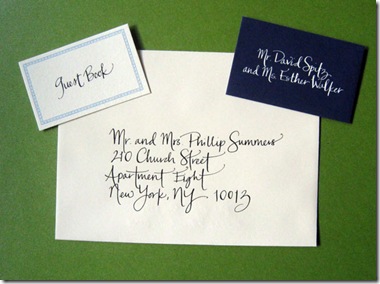 Guest Book
Mr. David Spitz
and Ms. Esther Walfer
Mr. and Mrs Phillip Summers
210 Church Street
Apartment Eight
New York, NY 10013